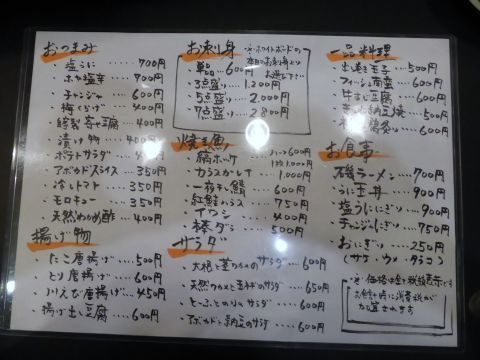 おつまみ
・塩うに ・・・・ 700円
・ホヤ塩辛 ・・・・ 700円
・チャンジャ ・・・・ 600円
・梅くらげ ・・・・ 400円
・漬け物 ・・・・ 400円
・ポテトサラダ ・・・ 400円
・アボカドスライス ・・・ 350円
・冷しトマト ・・・・ 350円
・モロキュー ・・・・ 350円
・天然わかめ酢 ・・・ 400円
揚げ物
・たこ唐揚げ ・・・・ 500円
・とり唐揚げ ・・・・ 600円
・川えび唐揚げ ・・・ 450円
・揚げ出し豆腐 ・・・ 600円
お刺し身
単品 ・・・ 600円
3点盛り ・・・ 1,200円
5点盛り ・・・ 2,000円
7点盛り ・・・ 2,800円
焼き魚
・縞ホッケ
・カラスガレイ ・・・ 1,000円
・一夜干し鯖 ・・・ 600円
・紅鮭ハラス ・・・ 750円
・イワシ ・・・ 400円
・棒ダラ ・・・ 500円
サラダ
・大根と茎わかめのサラダ ・・・ 600円
・天然わかめと香味のサラダ ・・・ 650円
・とーふとのりのサラダ ・・・ 600円
・アボカドと納豆のサラダ ・・・ 600円
一品料理
・出し巻き玉子 ・・・ 500円
・牛すじ豆腐 ・・・ 600円
お食事
・磯ラーメン ・・・ 700円
・うに玉丼 ・・・ 900円
・塩うにおにぎり ・・・ 900円
・チャンジャおにぎり ・・・ 750円
・おにぎり ・・・・ 250円
(サケ・ウメ・タラコ)
価格は全て税抜表示です
お会計時に消費税が
加算されます